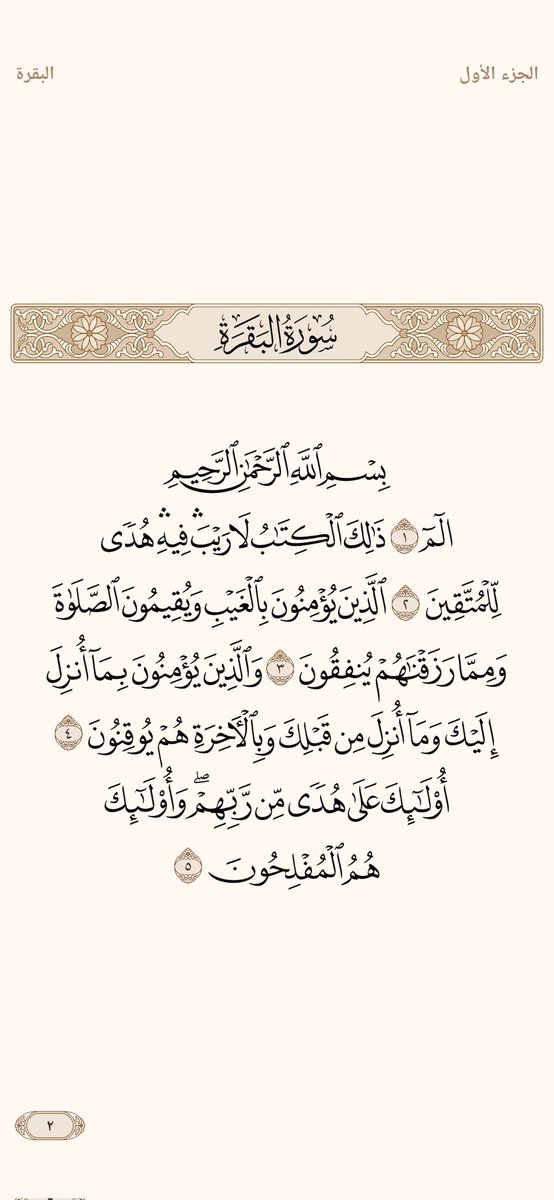 الجزء الأول
البقرة
سُورَةُ البَقَرَةِ
بِسْمِ ٱللَّهِ ٱلرَّحْمَٰنِ ٱلرَّحِيمِ
الٓمٓ ١ ذَٰلِكَ ٱلْكِتَٰبُ لَا رَيْبَۛ فِيهِۛ هُدًى
لِّلْمُتَّقِينَ ٢ ٱلَّذِينَ يُؤْمِنُونَ بِٱلْغَيْبِ وَيُقِيمُونَ ٱلصَّلَوٰةَ
وَمِمَّا رَزَقْنَٰهُمْ يُنفِقُونَ ٣ وَٱلَّذِينَ يُؤْمِنُونَ بِمَآ أُنزِلَ
إِلَيْكَ وَمَآ أُنزِلَ مِن قَبْلِكَ وَبِٱلْءَاخِرَةِ هُمْ يُوقِنُونَ ٤
أُوْلَٰٓئِكَ عَلَىٰ هُدًى مِّن رَّبِّهِمْۖ وَأُوْلَٰٓئِكَ
هُمُ ٱلْمُفْلِحُونَ ٥
٢